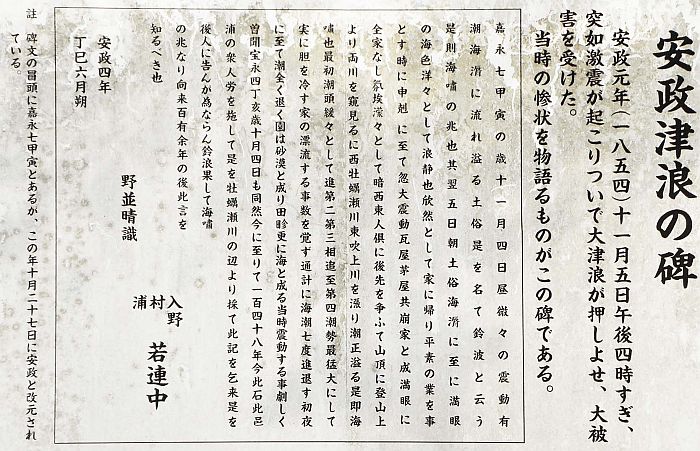 安政津浪の碑
安政元年(一八五四)十一月五日午後四時すぎ、
突如激震が起こりついで大津浪が押しよせ、大被
害を受けた。
当時の惨状を物語るものがこの碑である。
嘉永七甲寅の歳十一月四日昼微々の震動有
潮海滸に流れ溢る土俗是を名て鈴波と云う
是則海嘯の兆也其翌五日朝土俗海滸に至に満眼
の海色洋々として浪静也欣然として家に帰り平素の業を事
とす時に申剋に至て忽大震動瓦屋茅屋共崩家と成満眼に
全家なし氛埃濛々として暗西東人倶に後先を争ふて山頂に登山上
より両川を窺見るに西牡蠣瀬川東吹上川を漲り潮正溢る是即海
嘯也最初潮頭緩々として進第二第三相追至第四潮勢最猛大にして
実に胆を冷す家の漂流する事数を覚ず通計に海潮七度進退す初夜
に至て潮全く退く園は砂漠と成り田畛更に海と成る当時震動する事劇しく
曽聞宝永四丁亥歳十月四日も同然今に至りて一百四十八年今此石此邑
浦の衆人労を施して是を牡蠣瀬川の辺より採て此記を乞来是を
後人に告んが為ならん鈴浪果して海嘯
の兆なり向来百有余年の後此言を
知るべき也
安政四年
丁巳六月朔
野並晴識
入野
村
浦
若連中
註 碑文の冒頭に嘉永七甲寅とあるが、この年十月二十七日に安政と改元され
ている。